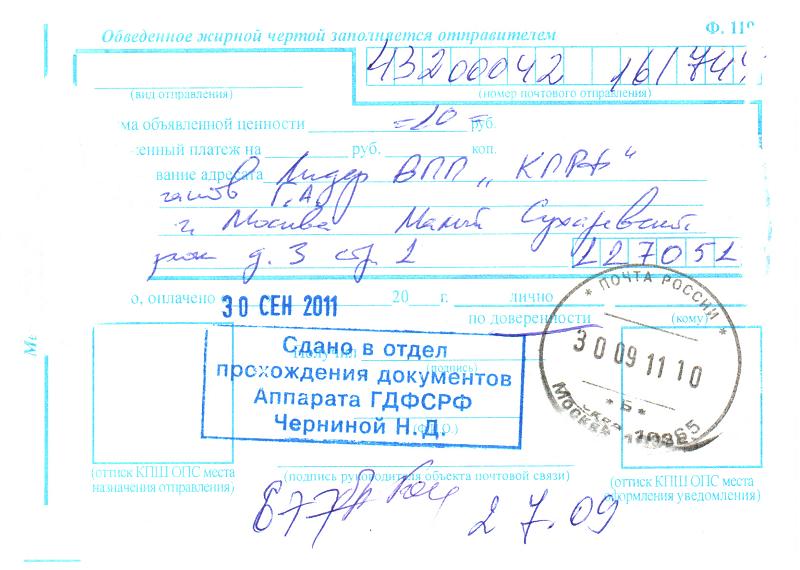 Обведенное жирной чертой заполняется отправителем
Ф. 119
43200042 16/74
(вид отправления)
(номер почтового отправления)
ма объявленной ценности =10= руб.
енный платеж на руб. коп.
вание адресата Лидер ВПП „КПРФ“
Г.А.
г. Москва Малый Сухаревский
д. 3 стр. 1 127051
о, оплачено 30 СЕН 2011 20 г. лично
по доверенности
(кому)
ПОЧТА РОССИИ
30 09 11 10
Б
МОСКВА
Сдано в отдел
прохождения документов
Аппарата ГДФСРФ
Черниной Н. Д.
получил
(подпись)
(Ф.И.О.)
(оттиск КПШ ОПС места
назначения отправления)
(подпись руководителя объекта почтовой связи)
(оттиск КПШ ОПС места
оформления уведомления)
677
27.09